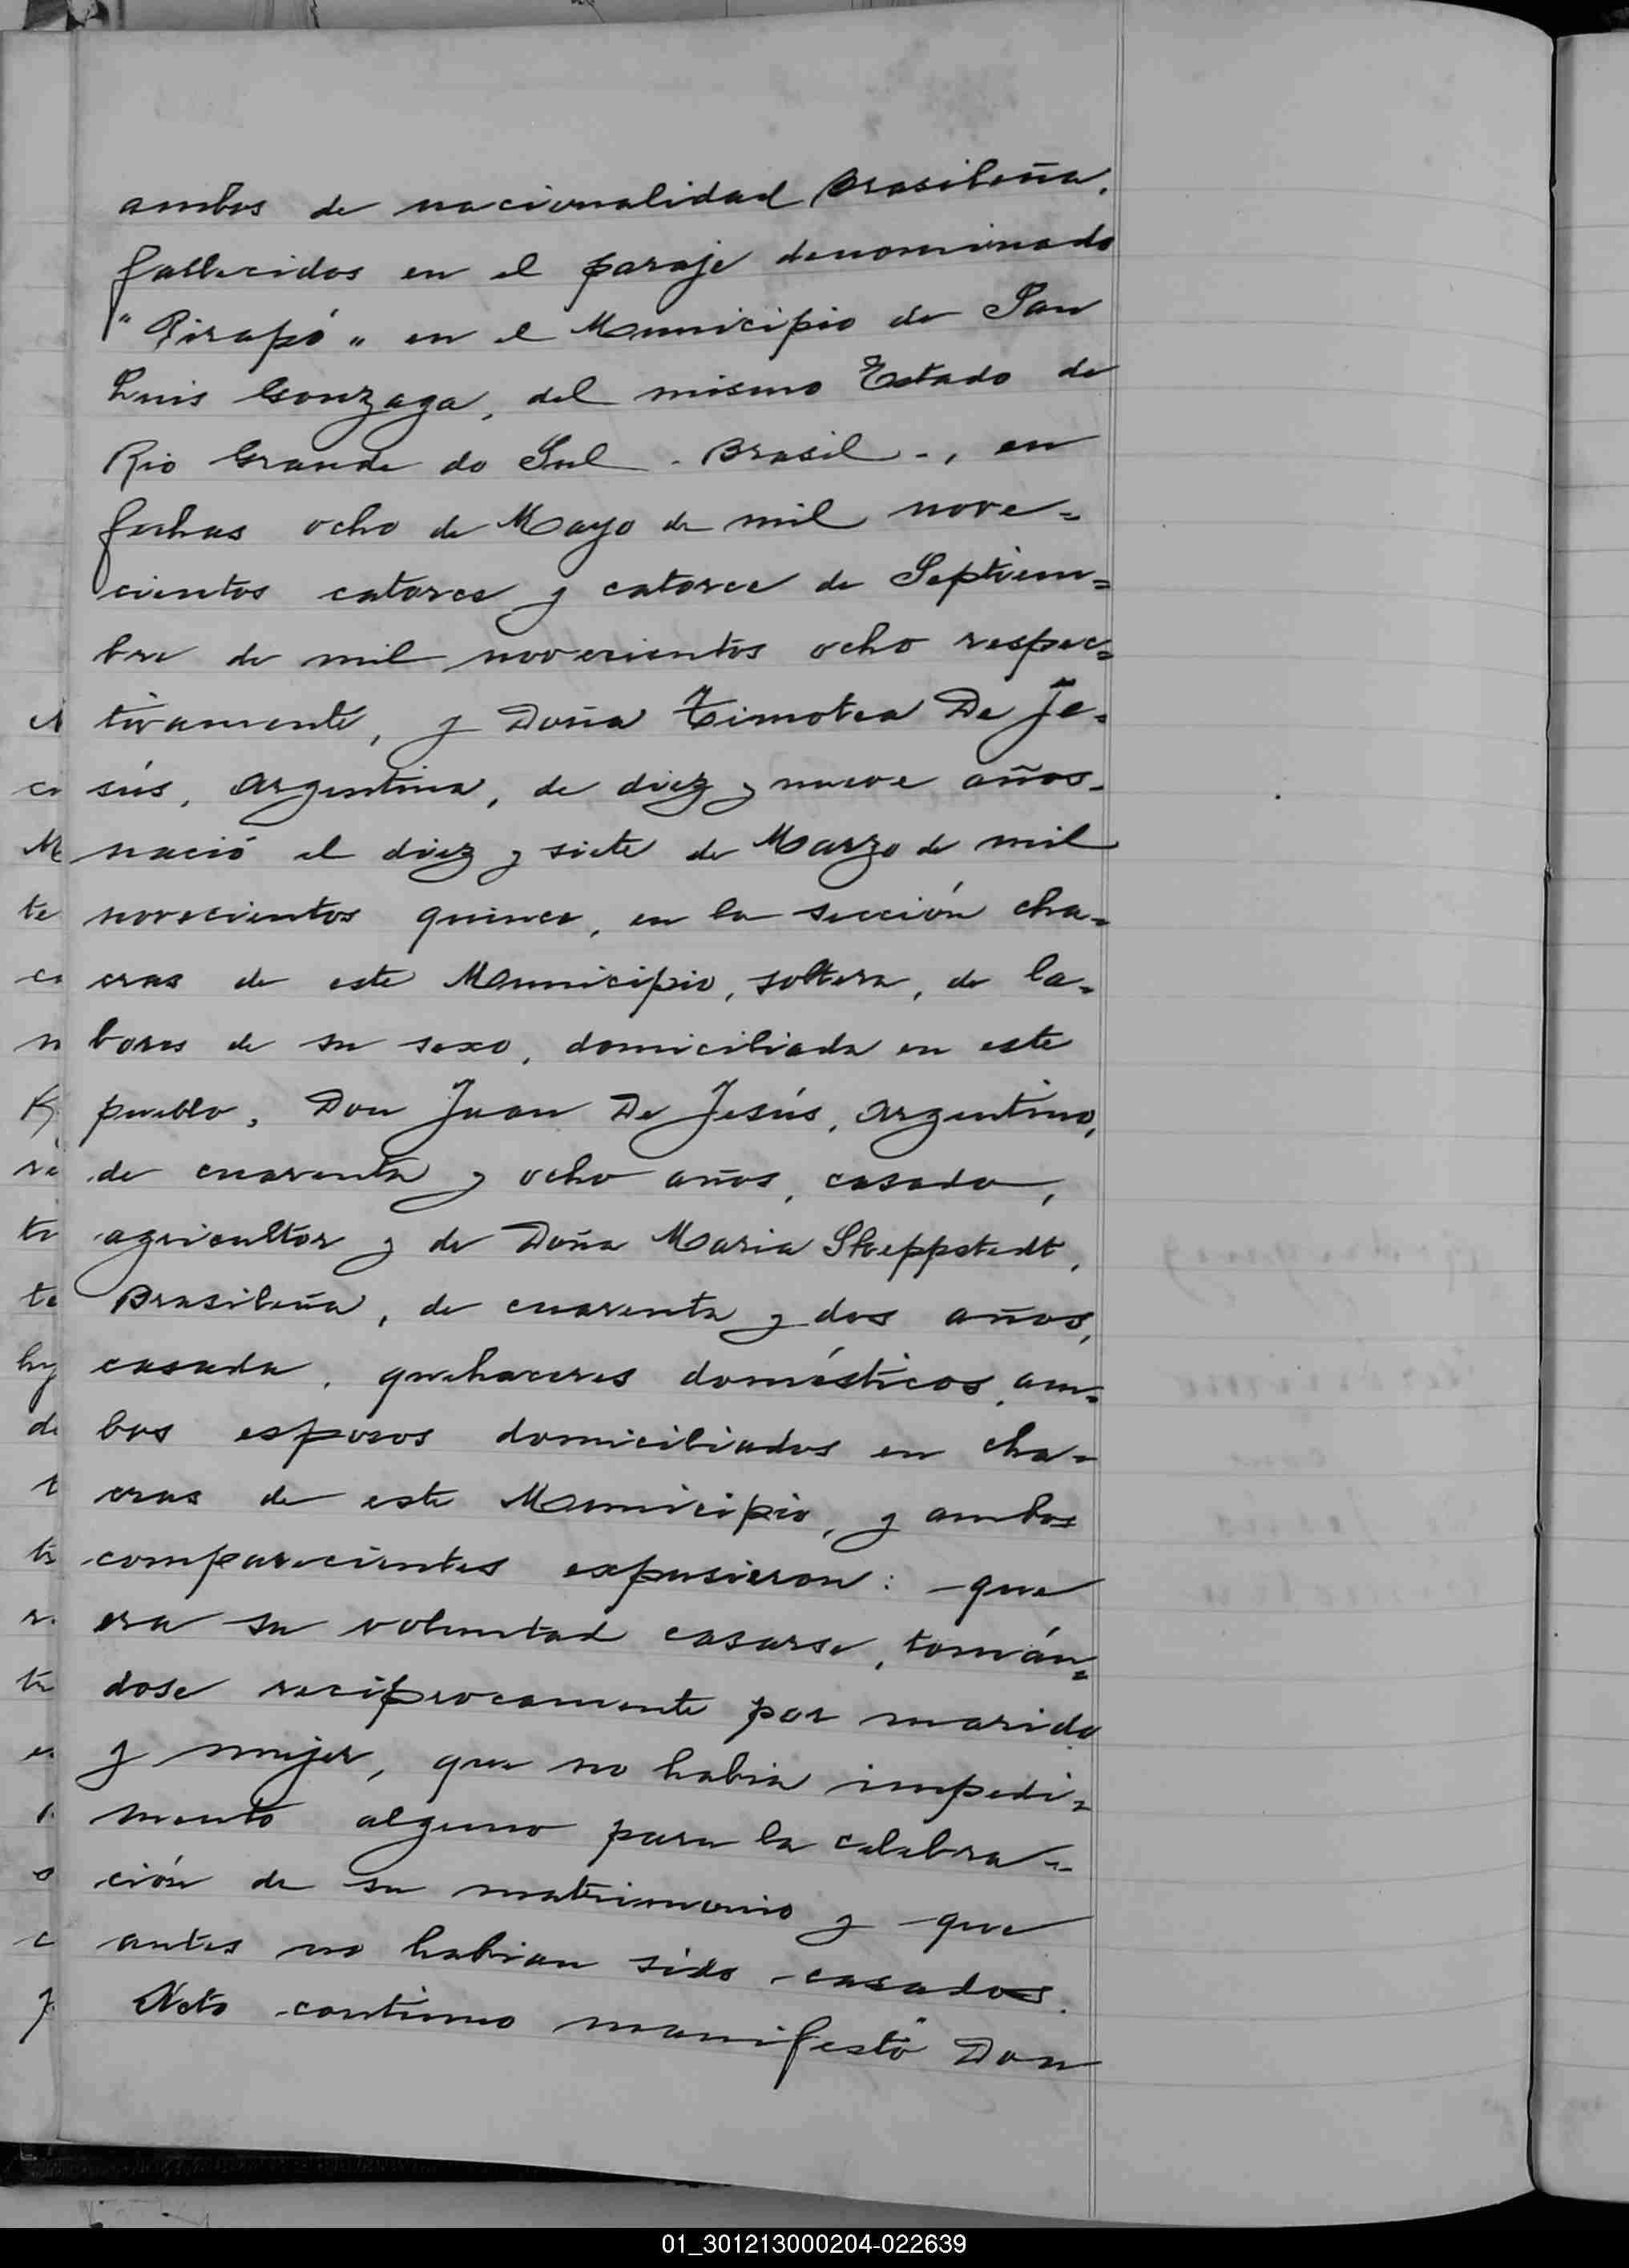 ambos de nacionalidad Brasileña,
fallecidos en el paraje denominado
"Pirapó" en el Municipio de San
Luis Gonzaga, del mismo Estado de
Rio Grande do Sul - Brasil -, en
fechas ocho de Mayo de mil nove=
cientos catorce y catorce de Septiem=
bre de mil novecientos ocho respec=
tivamente, y Doña Timotea De Je=
sús, Argentina, de diez y nueve años,
nació el diez y siete de Marzo de mil
novecientos quince, en la sección cha=
cras de este Municipio, soltera, de la=
bores de su sexo, domiciliada en este
pueblo, Don Juan De Jesús, Argentino,
de cuarenta y ocho años, casado,
agricultor y de Doña Maria Steppstedt,
Brasileña, de cuarenta y dos años,
casada, quehaceres domésticos, am=
bos esposos domiciliados en cha=
cras de este Municipio, y ambos
comparecientes expusieron: -que
era su voluntad casarse, tomán=
dose reciprocamente por marido
y mujer, que no habia impedi=
mento alguno para la celebra=
ción de su matrimonio y -que
antes no habian sido casados.
Acto continuo manifestó Don
01_301213000204-022639